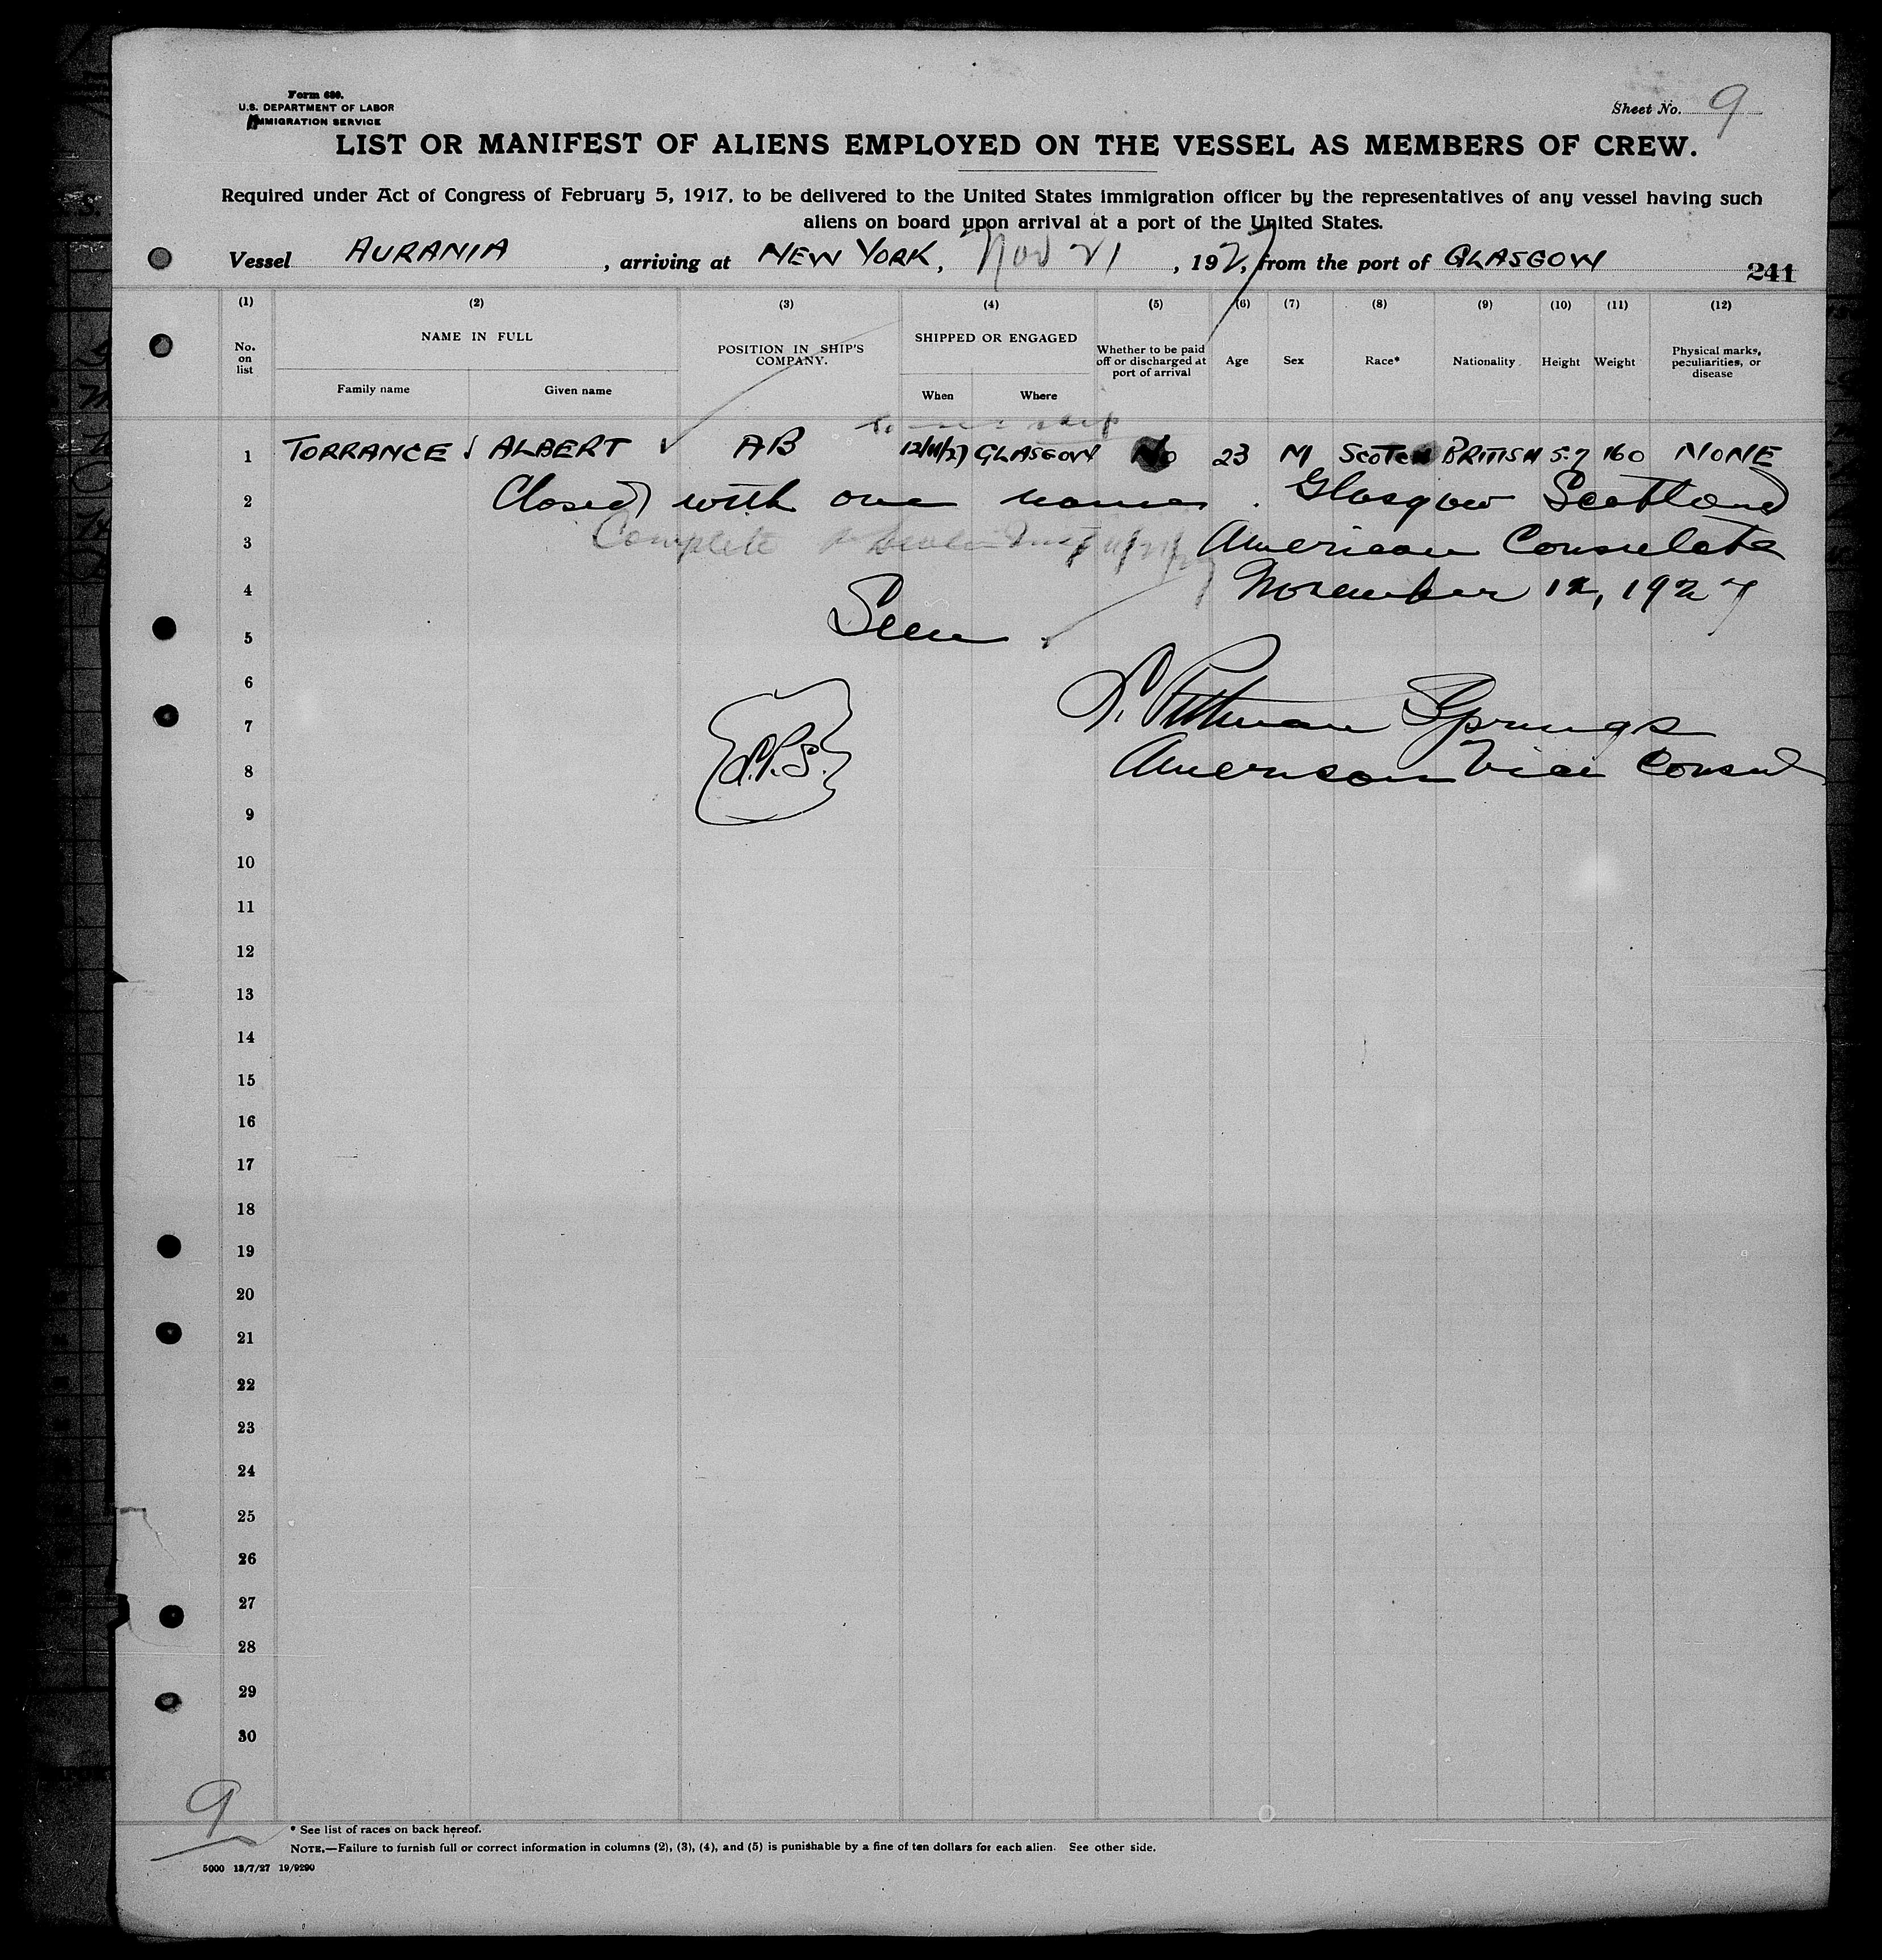 Form 680.
U.S. DEPARTMENT OF LABOR
IMMIGRATION SERVICE
Sheet No. 9
LIST OR MANIFEST OF ALIENS EMPLOYED ON THE VESSEL AS MEMBERS OF CREW.
Required under Act of Congress of February 5, 1917, to be delivered to the United States immigration officer by the representatives of any vessel having such
aliens on board upon arrival at a port of the United States.
Vessel AURANIA, arriving at NEW YORK, Nov 21, 1927, from the port of GLASGOW
241
(1) (2) (3) (4) (5) (6) (7) (8) (9) (10) (11) (12)
No. on list
NAME IN FULL
Family name Given name
POSITION IN SHIP'S COMPANY.
SHIPPED OR ENGAGED
When Where
Whether to be paid off or discharged at port of arrival
Age Sex Race* Nationality. Height Weight
Physical marks, peculiarities, or disease
1 TORRANCE ALBERT AB 12/11/27 GLASGOW No 23 M SCOTCH BRITISH 5-7 160 NONE
2 Closed with one name. Glasgow Scotland
3 Complete 11/21/27 American Consulate
4 November 12, 1927
5 Seen.
6
7 Pittman Springs
8 S.P.S. American Vice Consul
9
10
11
12
13
14
15
16
17
18
19
20
21
22
23
24
25
26
27
28
29
30
9
* See list of races on back hereof.
NOTE.—Failure to furnish full or correct information in columns (2), (3), (4), and (5) is punishable by a fine of ten dollars for each alien. See other side.
5000 13/7/27 19/9290